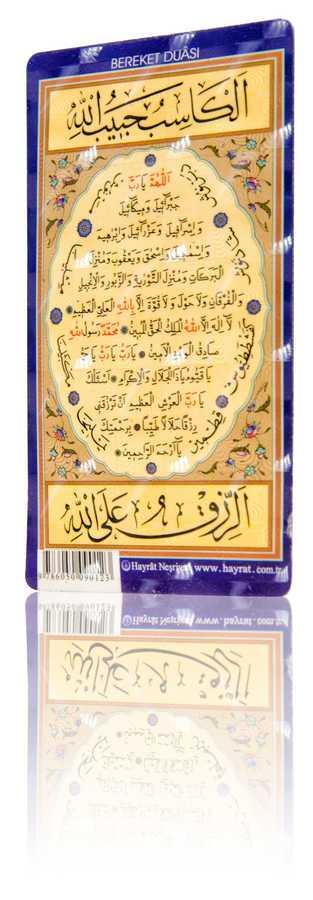 BEREKET DUÂSI
اَلْكَاسِبُ حَبِيبُ اللّٰهِ
اَللّٰهُمَّ يَا رَبَّ
جَبْرَائِيلَ وَمِيكَائِيلَ
وَاِسْرَافِيلَ وَعَزْرَائِيلَ وَاِبْرَهِيمَ
وَاِسْمٰعِيلَ وَاِسْحٰقَ وَيَعْقُوبَ وَمُنْزِلَ
الْبَرَكَاتِ وَمُنْزِلَ التَّوْرٰيةِ وَالزَّبُورِ وَالْاِنْجِيلِ
وَالْفُرْقَانِ وَلَا حَوْلَ وَلَا قُوَّةَ اِلَّا بِاللّٰهِ الْعَلِيِّ الْعَظِيمِ
لَا اِلٰهَ اِلَّا اللّٰهُ الْمَلِكُ الْحَقُّ الْمُبِينُ مُحَمَّدٌ رَسُولُ اللّٰهِ
صَادِقُ الْوَعْدِ الْاَمِينُ يَا رَبِّ يَا رَبِّ يَا حَيُّ
يَا قَيُّومُ يَا ذَا الْجَلَالِ وَالْاِكْرَامِ اَسْئَلُكَ
يَا رَبَّ الْعَرْشِ الْعَظِيمِ اَنْ تَرْزُقَنِي
رِزْقًا حَلَالًا طَيِّبًا بِرَحْمَتِكَ
يَا اَرْحَمَ الرَّاحِمِينَ
اَلرِّزْقُ عَلَى اللّٰهِ
Hayrât Neşriyat www.hayrat.com.tr
9786050090123